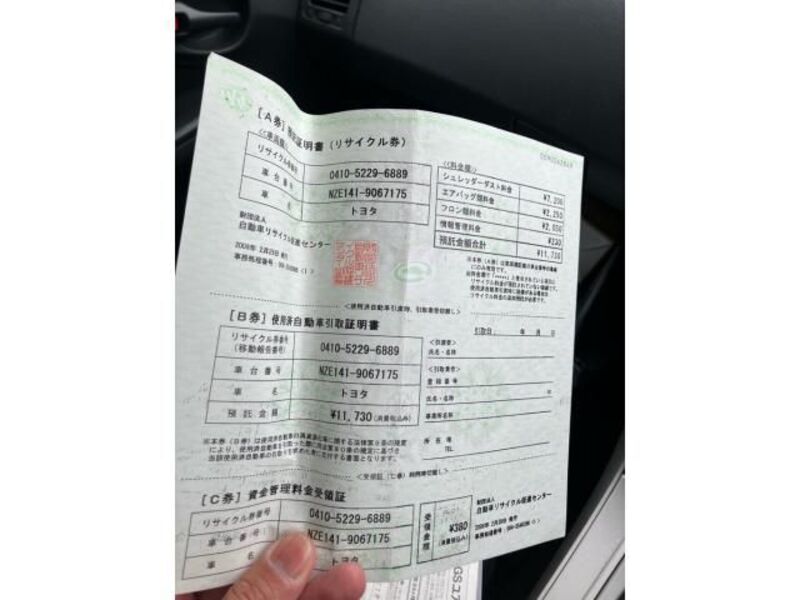 [A券] 預託証明書(リサイクル券)
<<車両欄>>
リサイクル券番号 0410-5229-6889
車台番号 NZE141-9067175
車名 トヨタ
財団法人
自動車リサイクル促進センター
<<料金欄>>
シュレッダーダスト料金 ¥7,200
エアバッグ類料金 ¥2,250
フロン類料金 ¥2,050
情報管理料金 ¥230
預託金額合計 ¥11,730
<使用済自動車引渡時、引取業者切離し>
[B券] 使用済自動車引取証明書
リサイクル券番号
(移動報告番号) 0410-5229-6889
車台番号 NZE141-9067175
車名 トヨタ
預託金額 ¥11,730 (消費税込み)
引取日: 年 月 日
氏名・名称
<引取業者>
登録番号
氏名・名称
事業所名称
所在地
TEL
[C券] 資金管理料金受領証
リサイクル券番号 0410-5229-6889
車台番号 NZE141-9067175
車名 トヨタ
受領金額 ¥380
(消費税込み)
財団法人
自動車リサイクル促進センター